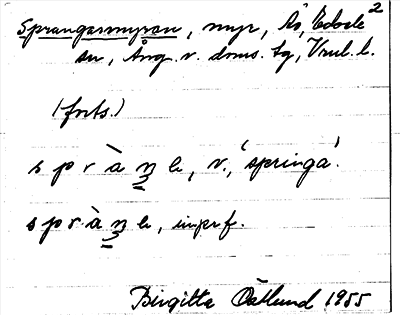 Sprangarmyran, myr, Ås, Edsele 2
sn, Ång. v. doms. tg, Vnl. l.
(forts.)
s p r à ŋ e, v., 'springa'.
s p r à ŋ e, imprf.
Birgitta Östlund 1955